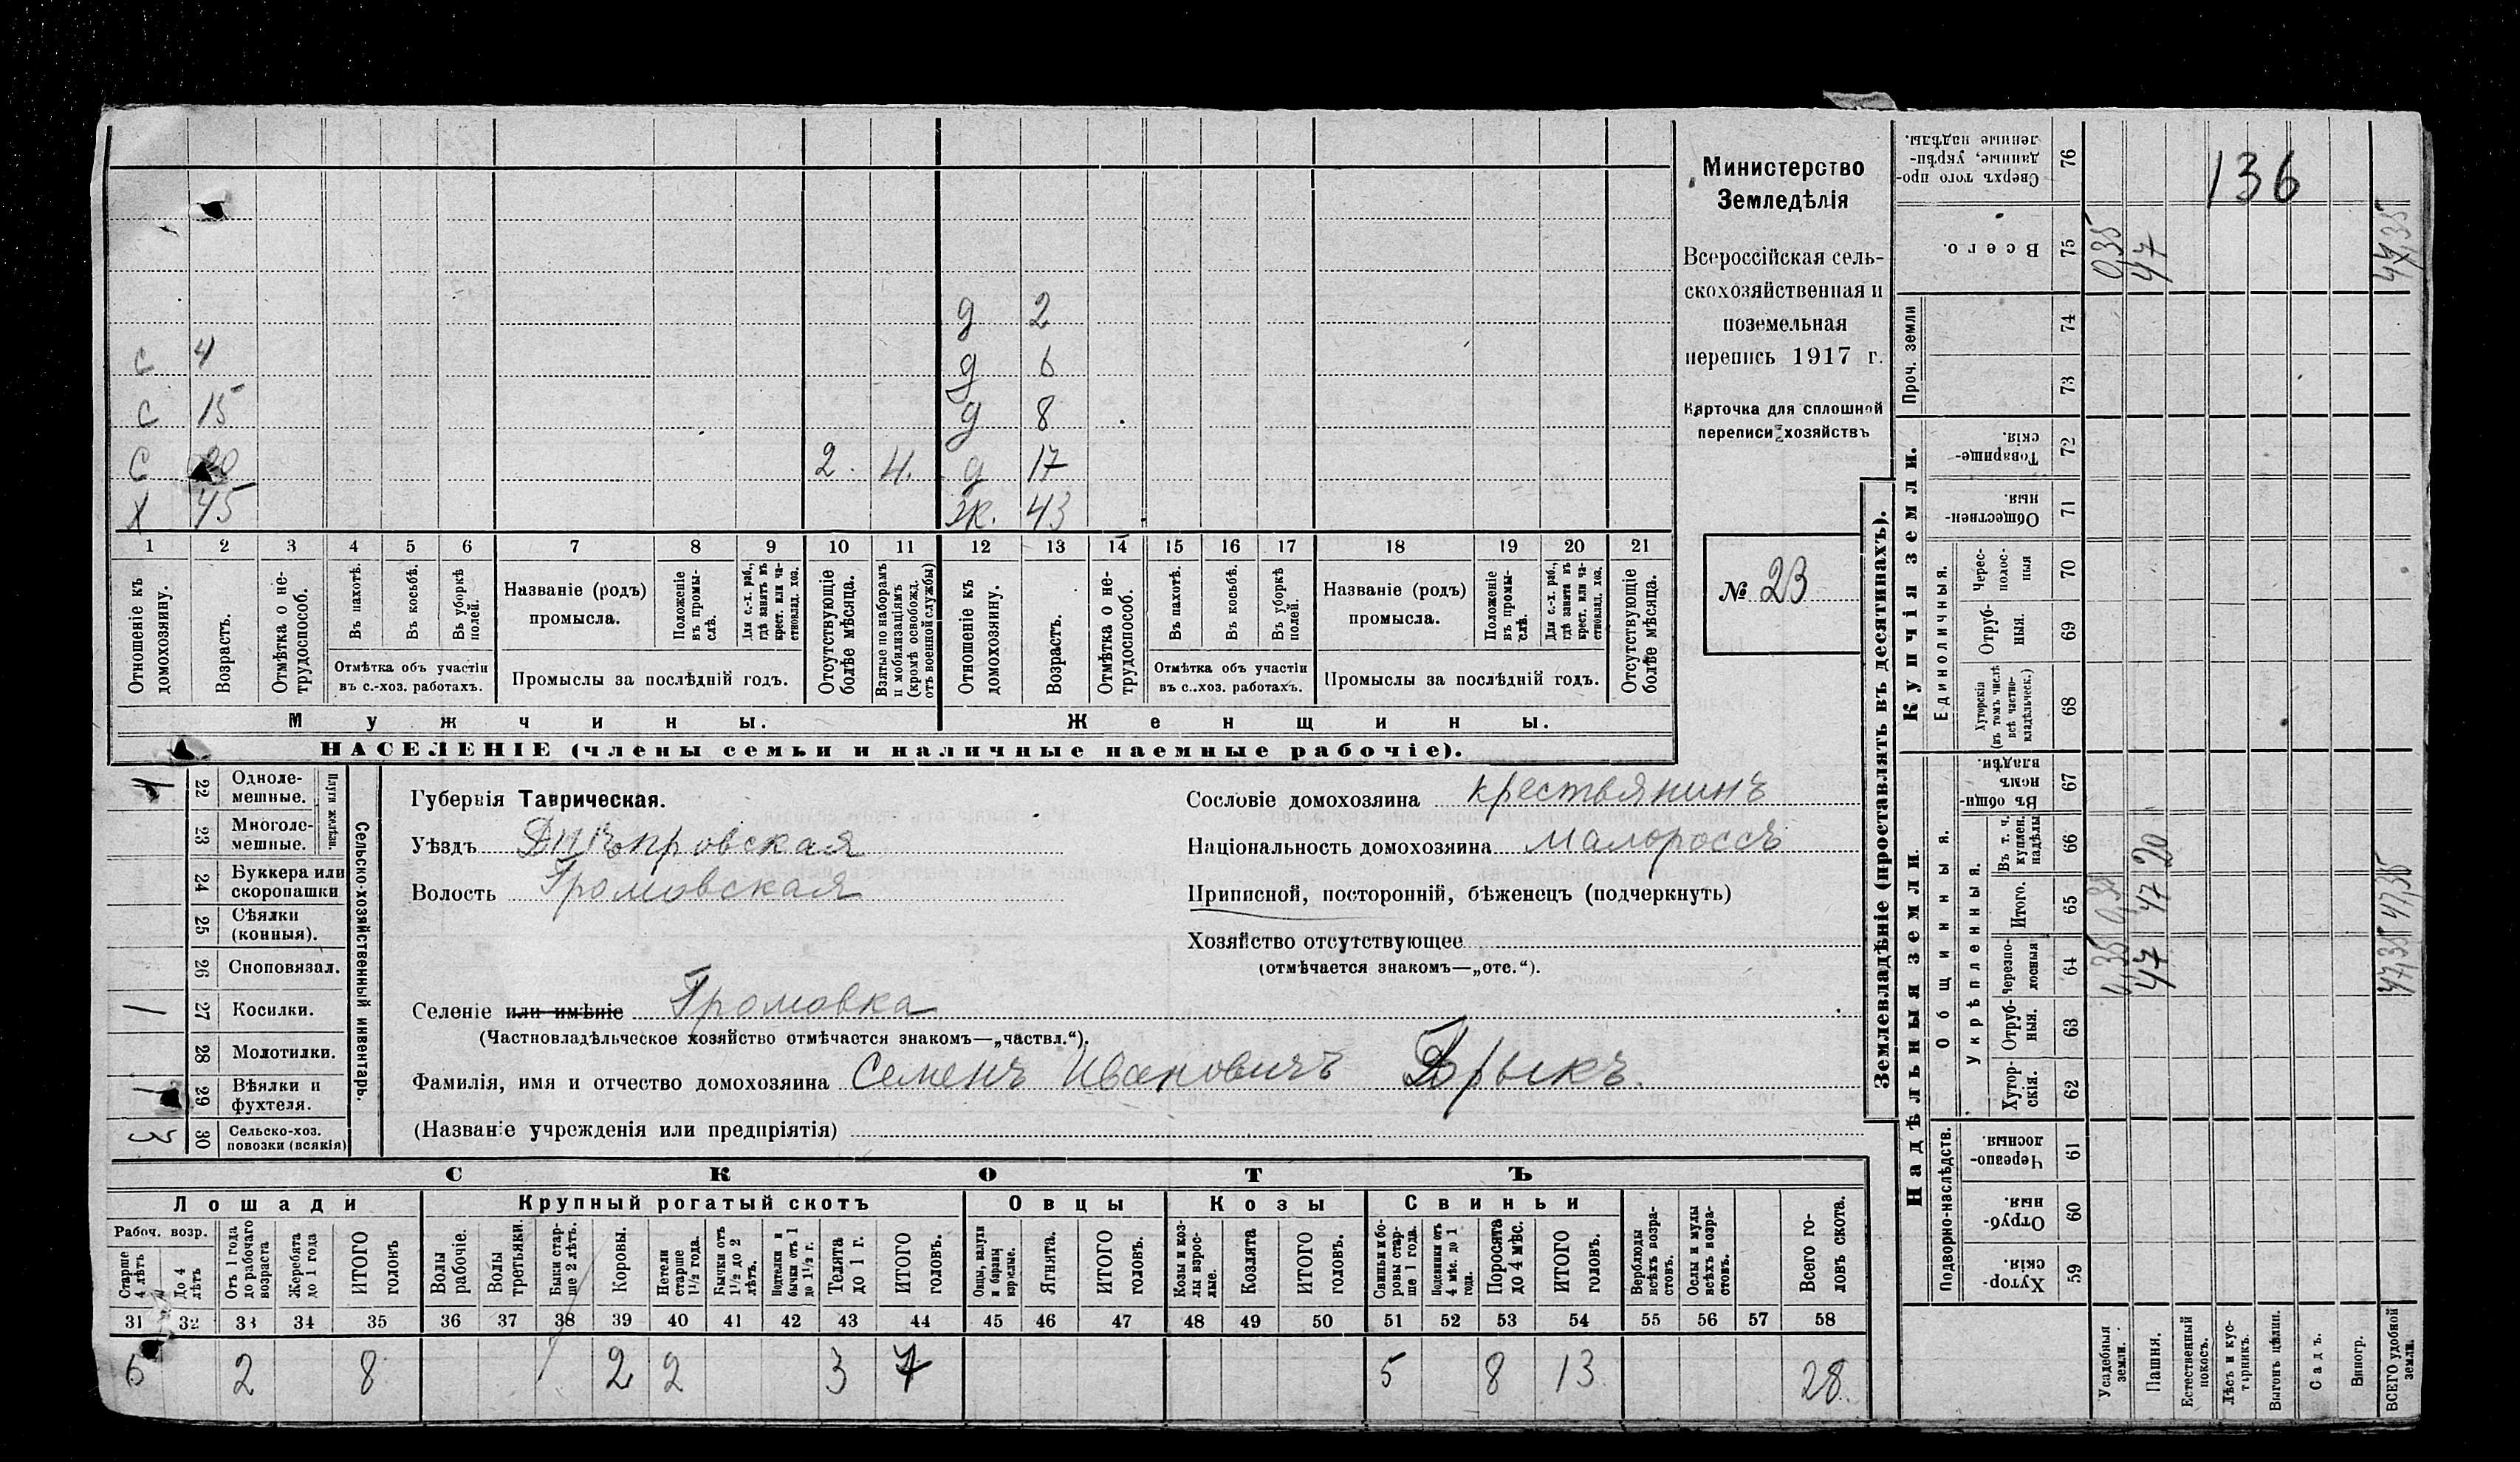 136
Министерство
Земледѣлія
Всероссійская сель-
скохозяйственная и
поземельная
перепись 1917 г.
Карточка для сплошной
переписи хозяйствъ
№ 23
д 2
с 4 д 6
с 15 д 8
с 20 2. 4. д 17
х 45 ж. 43
1 2 3 4 5 6 7 8 9 10 11 12 13 14 15 16 17 18 19 20 21
Отношеніе къ домохозяину.
Возрастъ.
Отмѣтка о не-трудоспособ.
Въ пахотѣ.
Въ косьбѣ.
Въ уборкѣ полей.
Отмѣтка объ участіи
въ с.-хоз. работахъ.
Названіе (родъ)
промысла.
Положеніе въ промы-слѣ.
Для с.-х. раб., гдѣ занятъ въ крест. или ча-стновлад. хоз.
Промыслы за послѣдній годъ.
Отсутствующіе болѣе мѣсяца.
Взятые по наборамъ и мобилизаціямъ (кромѣ освобожд. отъ военной службы)
Отношеніе къ домохозяину.
Возрастъ.
Отмѣтка о не-трудоспособ.
Въ пахотѣ.
Въ косьбѣ.
Въ уборкѣ полей.
Отмѣтка объ участіи
въ с.-хоз. работахъ.
Названіе (родъ)
промысла.
Положеніе въ промы-слѣ.
Для с.-х. раб., гдѣ занята въ крест. или ча-стновлад. хоз.
Промыслы за послѣдній годъ.
Отсутствующіе болѣе мѣсяца.
Мужчины. Женщины.
НАСЕЛЕНІЕ (члены семьи и наличные наемные рабочіе).
Сельско-хозяйственный инвентарь.
Плуги желѣзн.
1 22 Одноле-мешные.
23 Многоле-мешные.
24 Буккера или скоропашки
25 Сѣялки (конныя).
26 Сноповязал.
1 27 Косилки.
28 Молотилки.
1 29 Вѣялки и фухтеля.
3 30 Сельско-хоз. повозки (всякія)
Губернія Таврическая.
Уѣздъ Днѣпровская
Волость Громовская
Сословіе домохозяина крестьянинъ
Національность домохозяина малороссъ
Приписной, посторонній, бѣженецъ (подчеркнуть)
Хозяйство отсутствующее
(отмѣчается знакомъ—„отс.“).
Селеніе или имѣніе Громовка
(Частновладѣльческое хозяйство отмѣчается знакомъ—„частвл.“).
Фамилія, имя и отчество домохозяина Семенъ Ивановичъ Брыкъ.
(Названіе учрежденія или предпріятія)
СКОТЪ
Лошади Крупный рогатый скотъ Овцы Козы Свиньи
Рабоч. возр.
Старше 4 лѣтъ
До 4 лѣтъ
Отъ 1 года до рабочаго возраста
Жеребята до 1 года
ИТОГО головъ
Волы рабочіе.
Волы третьяки.
Быки стар-ше 2 лѣтъ.
Коровы.
Нетели старше 1½ года.
Бычки отъ 1½ до 2 лѣтъ.
Подтелки и бычки отъ 1 до 1½ г.
Телята до 1 г.
ИТОГО головъ.
Овцы, валухи и бараны взрослые.
Ягнята.
ИТОГО головъ.
Козы и коз-лы взрос-лые.
Козлята
ИТОГО головъ.
Свиньи и бо-ровы стар-ше 1 года.
Подсвинки отъ 4 мѣс. до 1 года.
Поросята до 4 мѣс.
ИТОГО головъ.
Верблюды всѣхъ возра-стовъ.
Ослы и мулы всѣхъ возра-стовъ.
Всего го-ловъ скота.
31 32 33 34 35 36 37 38 39 40 41 42 43 44 45 46 47 48 49 50 51 52 53 54 55 56 57 58
6 2 8 2 2 3 7 5 8 13 28.
Землевладѣніе (проставлять въ десятинахъ).
Купчія земли.
Сверхъ того про-данные, укрѣп-ленные надѣлы. 76
Всего. 75 0,35 47 47,35
Проч. земли 74
73
Товарище-скія. 72
Обществен-ныя. 71
Единоличныя.
Черес-полос-ныя 70
Отруб-ныя. 69
Хуторскія (въ томъ числѣ всѣ частно-владѣльческ.) 68
Надѣльныя земли.
Общинныя.
Въ общи-нномъ владѣн. 67
Укрѣпленныя.
Въ т. ч. куплен. надѣлы 66 20
Итого. 65 0,35 47 47,35
Черезпо-лосныя 64 47 47,35
Отруб-ныя. 63
Хутор-скія. 62
Подворно-наслѣдств.
Черезпо-лосныя. 61
Отруб-ныя. 60
Хутор-скія. 59
Усадебныя земли.
Пашня.
Естественный покосъ.
Лѣсъ и кус-тарникъ.
Выгонъ цѣлин.
Садъ.
Виногр.
ВСЕГО удобной земли.